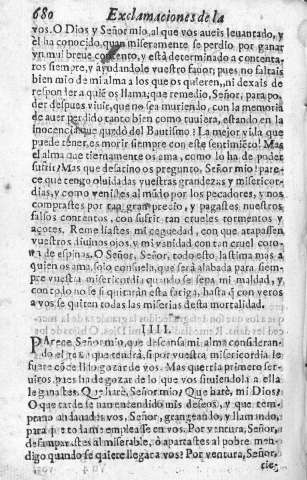 680 Exclamaciones de la
vos. O Dios y Señor mio, al que vos aueis leuantado, y
el ha conocido quan miseramente se perdio por ganar
vn mui breue contento, y està determinado a contenta-
ros siempre, y ayudandole vuestro fauor; pues no faltais
bien mio de mi alma a los que os quieren, ni dexais de
responder a quiē os llama, que remedio, Señor, para po-
der despues viuir, que no sea muriendo, con la memoria
de auer perdido tanto bien como tuuiera, estando en la
inocencia que quedò del Bautismo? La mejor vida que
puede tener, es morir siempre con este sentimiēto! Mas
el alma que tiernamente os ama, como lo ha de poder
sufrir? Mas que desatino os pregunto, Señor mio! pare-
ce que tengo oluidadas vuestras grandezas y misericor-
dias, y como venistes al mūdo por los pecadores, y nos
comprastes por tan gran precio, y pagastes nuestros
falsos contentos, con sufrir tan crueles tormentos y
açotes. Remediastes mi ceguedad, con que atapassen
vuestros diuinos ojos, y mi vanidad con tan cruel coro-
na de espinas. O Señor, Señor, todo esto lastima mas a
quien os ama, solo consuela, que serà alabada para siem-
pre vuestra misericordia quando se sepa mi maldad, y
con todo no sè si quitaràn esta fatiga, hasta q̃ con veros
a vos se quiten todas las miserias desta mortalidad.
IIII.
PArece Señor mio, que descansa mi alma consideran-
do el gozo que tendrà, si por vuestra misericordia le
fuere cōcedido gozar de vos. Mas querria primero ser-
uiros, pues ha de gozar de lo que vos siruiendola a ella
le ganastes. Que harè, Señor mio! Que harè, mi Dios!
O que tarde se han encendido mis deseos, y que tem-
prano andauades vos, Señor, grangeando, y llamando,
para que toda me empleasse en vos. Por ventura, Señor,
desamparastes al miserable, ò apartastes al pobre men-
digo quando se quiere llegar a vos? Por ventura, Señor,
tie-